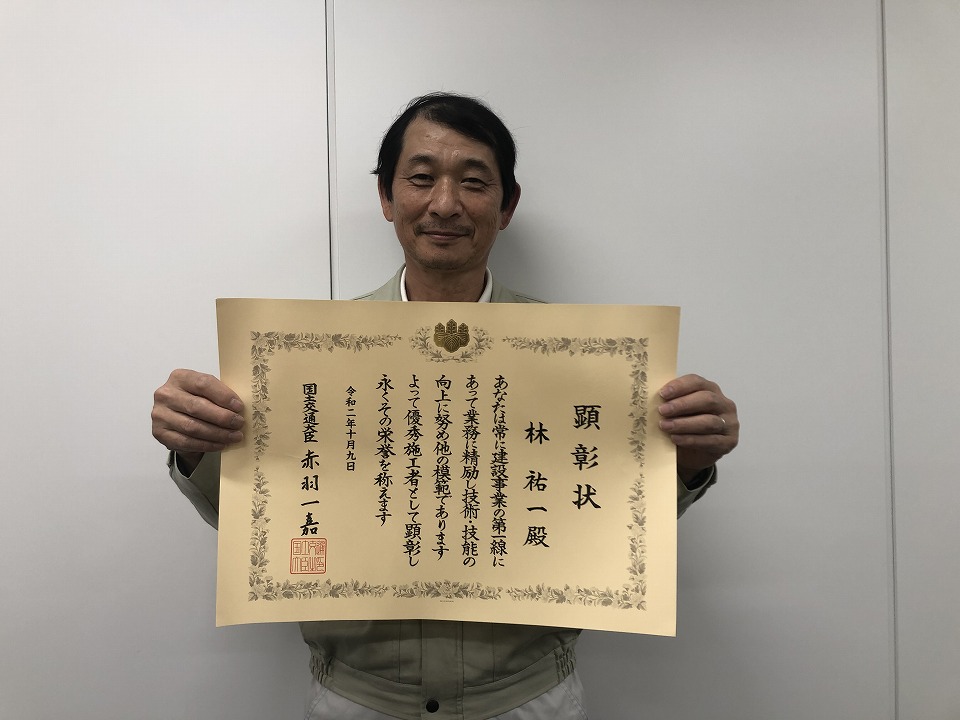 顕彰状
林祐一殿
あなたは常に建設事業の第一線に
あって業務に精励し技術・技能の
向上に努め他の模範であります
よって優秀施工者として顕彰し
永くその栄誉を称えます
令和二年十月九日
国土交通大臣 赤羽一嘉